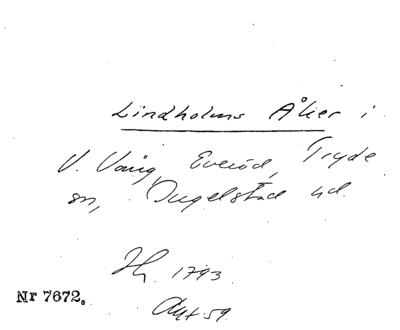 Lindholms Åker i
V. Vång, Everöd, Tryde
sn, Ingelstad hd.
Hg. 1793.
Akt 59.
Nr 7672.